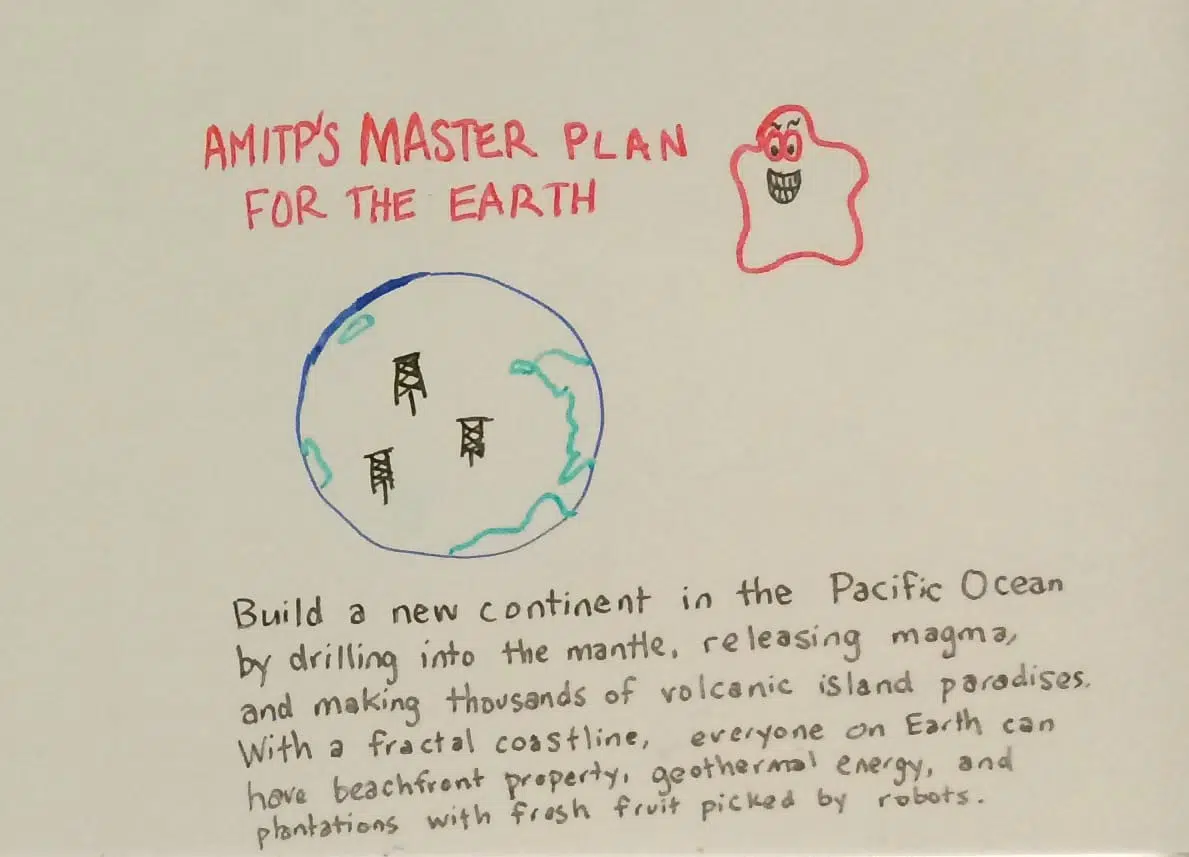 AMITP'S MASTER PLAN
FOR THE EARTH
Build a new continent in the Pacific Ocean
by drilling into the mantle, releasing magma,
and making thousands of volcanic island paradises.
With a fractal coastline, everyone on Earth can
have beachfront property, geothermal energy, and
plantations with fresh fruit picked by robots.